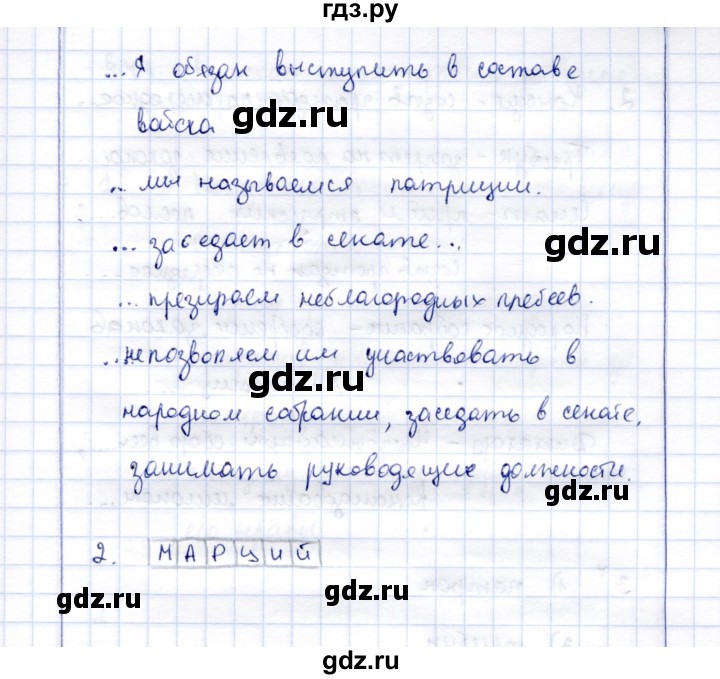 гдз.ру
... Я обязан выступить в составе
войска gdz.ru
... мы называемся патриции.
... заседает в сенате... gdz.ru
... презираем неблагородных плебеев.
... непозволяем им участвовать в
gdz.ru
народном собрании, заседать в сенате,
занимать руководящие должности.
gdz.ru
2. МАРЦИЙ
gdz.ru gdz.ru
gdz.ru